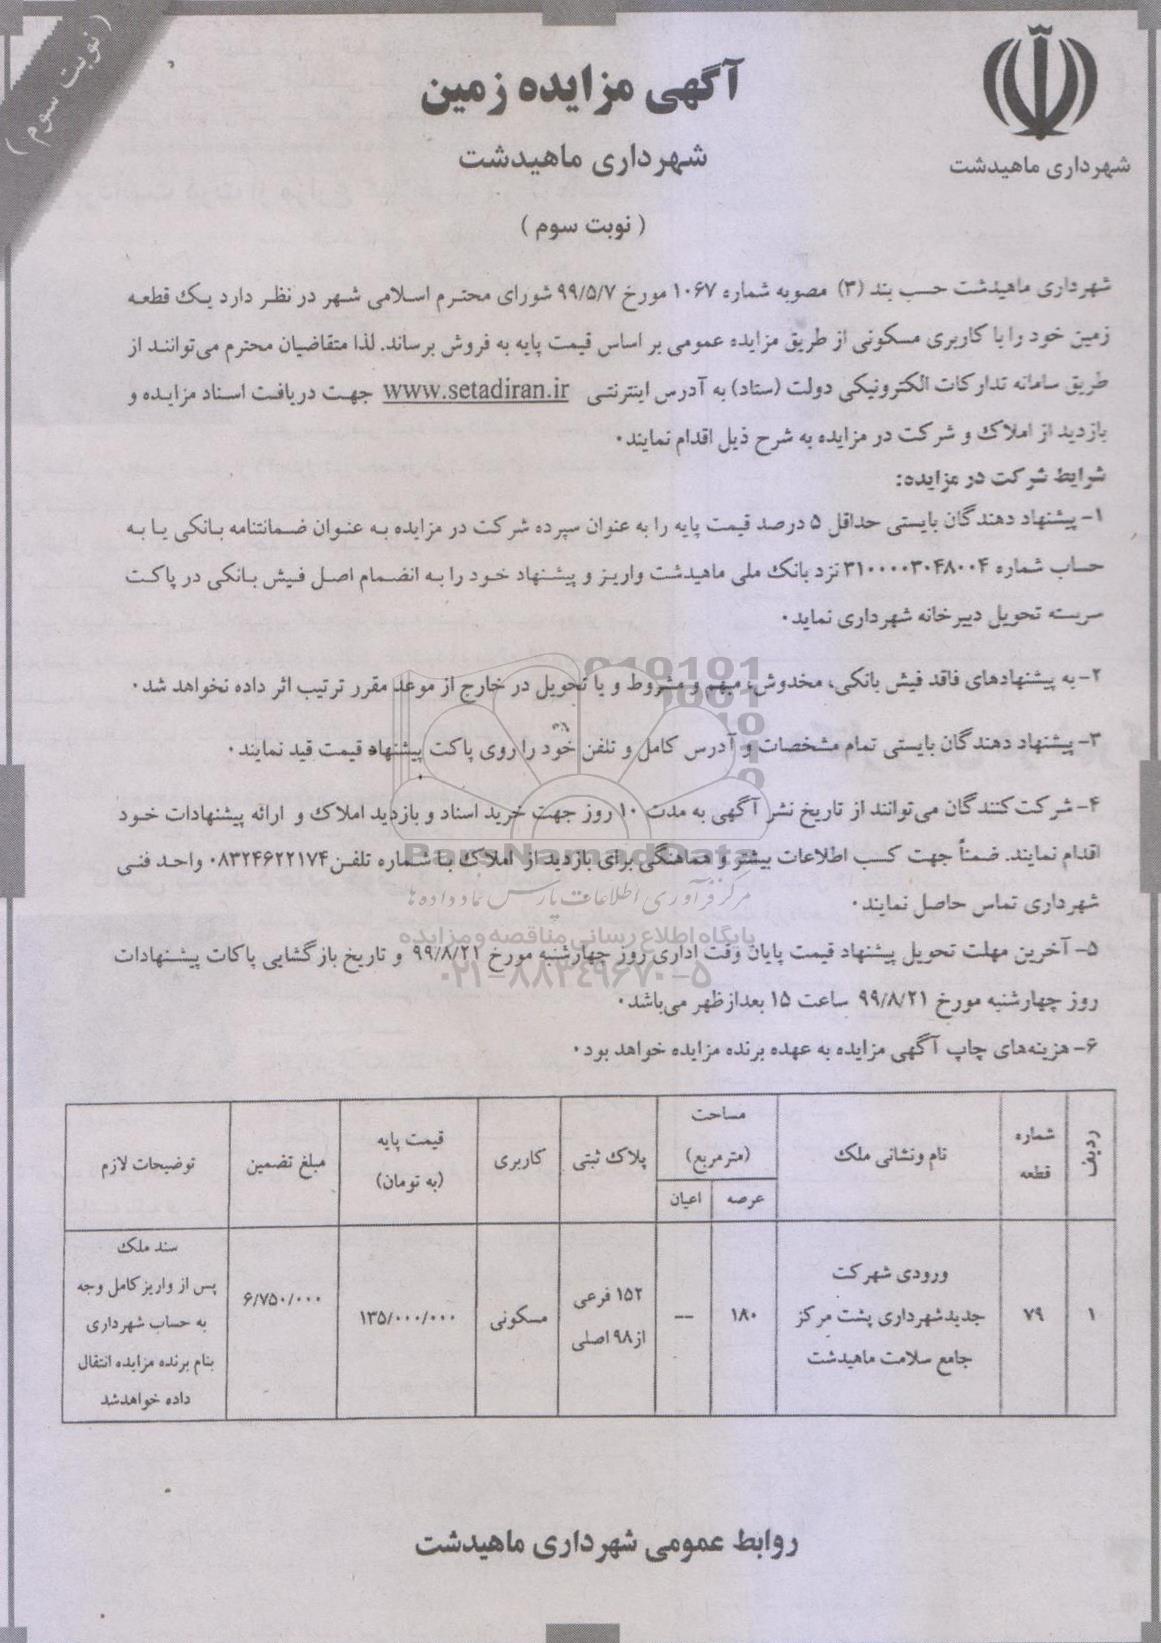 ( نوبت سوم )
شهرداری ماهیدشت
آگهی مزایده زمین
شهرداری ماهیدشت
( نوبت سوم )
شهرداری ماهیدشت حسب بند (۳) مصوبه شماره ۱۰۶۷ مورخ ۹۹/۵/۷ شورای محترم اسلامی شهر در نظر دارد یک قطعه
زمین خود را با کاربری مسکونی از طریق مزایده عمومی بر اساس قیمت پایه به فروش برساند. لذا متقاضیان محترم می‌توانند از
طریق سامانه تدارکات الکترونیکی دولت (ستاد) به آدرس اینترنتی www.setadiran.ir جهت دریافت اسناد مزایده و
بازدید از املاک و شرکت در مزایده به شرح ذیل اقدام نمایند.
شرایط شرکت در مزایده:
۱- پیشنهاد دهندگان بایستی حداقل ۵ درصد قیمت پایه را به عنوان سپرده شرکت در مزایده به عنوان ضمانتنامه بانکی یا به
حساب شماره ۳۱۰۰۰۰۳۰۴۸۰۰۴ نزد بانک ملی ماهیدشت واریز و پیشنهاد خود را به انضمام اصل فیش بانکی در پاکت
سربسته تحویل دبیرخانه شهرداری نماید.
۲- به پیشنهادهای فاقد فیش بانکی، مخدوش، مبهم و مشروط و یا تحویل در خارج از موعد مقرر ترتیب اثر داده نخواهد شد.
۳- پیشنهاد دهندگان بایستی تمام مشخصات و آدرس کامل و تلفن خود را روی پاکت پیشنهاد قیمت قید نمایند.
۴- شرکت‌کنندگان می‌توانند از تاریخ نشر آگهی به مدت ۱۰ روز جهت خرید اسناد و بازدید املاک و ارائه پیشنهادات خود
اقدام نمایند. ضمناً جهت کسب اطلاعات بیشتر و هماهنگی برای بازدید از املاک با شماره تلفن ۰۸۳۲۴۶۲۲۱۷۴ واحد فنی
شهرداری تماس حاصل نمایند.
۵- آخرین مهلت تحویل پیشنهاد قیمت پایان وقت اداری روز چهارشنبه مورخ ۹۹/۸/۲۱ و تاریخ بازگشایی پاکات پیشنهادات
روز چهارشنبه مورخ ۹۹/۸/۲۱ ساعت ۱۵ بعدازظهر می‌باشد.
۶- هزینه‌های چاپ آگهی مزایده به عهده برنده مزایده خواهد بود.
ParsNamadData
مرکز فرآوری اطلاعات پارس نماد داده ها
پایگاه اطلاع رسانی مناقصه و مزایده
۰۲۱-۸۸۳۴۹۶۷۰-۵
ردیف | شماره قطعه | نام ونشانی ملک | مساحت (مترمربع) عرصه | اعیان | پلاک ثبتی | کاربری | قیمت پایه (به تومان) | مبلغ تضمین | توضیحات لازم
۱ | ۷۹ | ورودی شهرکت جدیدشهرداری پشت مرکز جامع سلامت ماهیدشت | ۱۸۰ | -- | ۱۵۲ فرعی از ۹۸ اصلی | مسکونی | ۱۳۵/۰۰۰/۰۰۰ | ۶/۷۵۰/۰۰۰ | سند ملک پس از واریز کامل وجه به حساب شهرداری بنام برنده مزایده انتقال داده خواهدشد
روابط عمومی شهرداری ماهیدشت